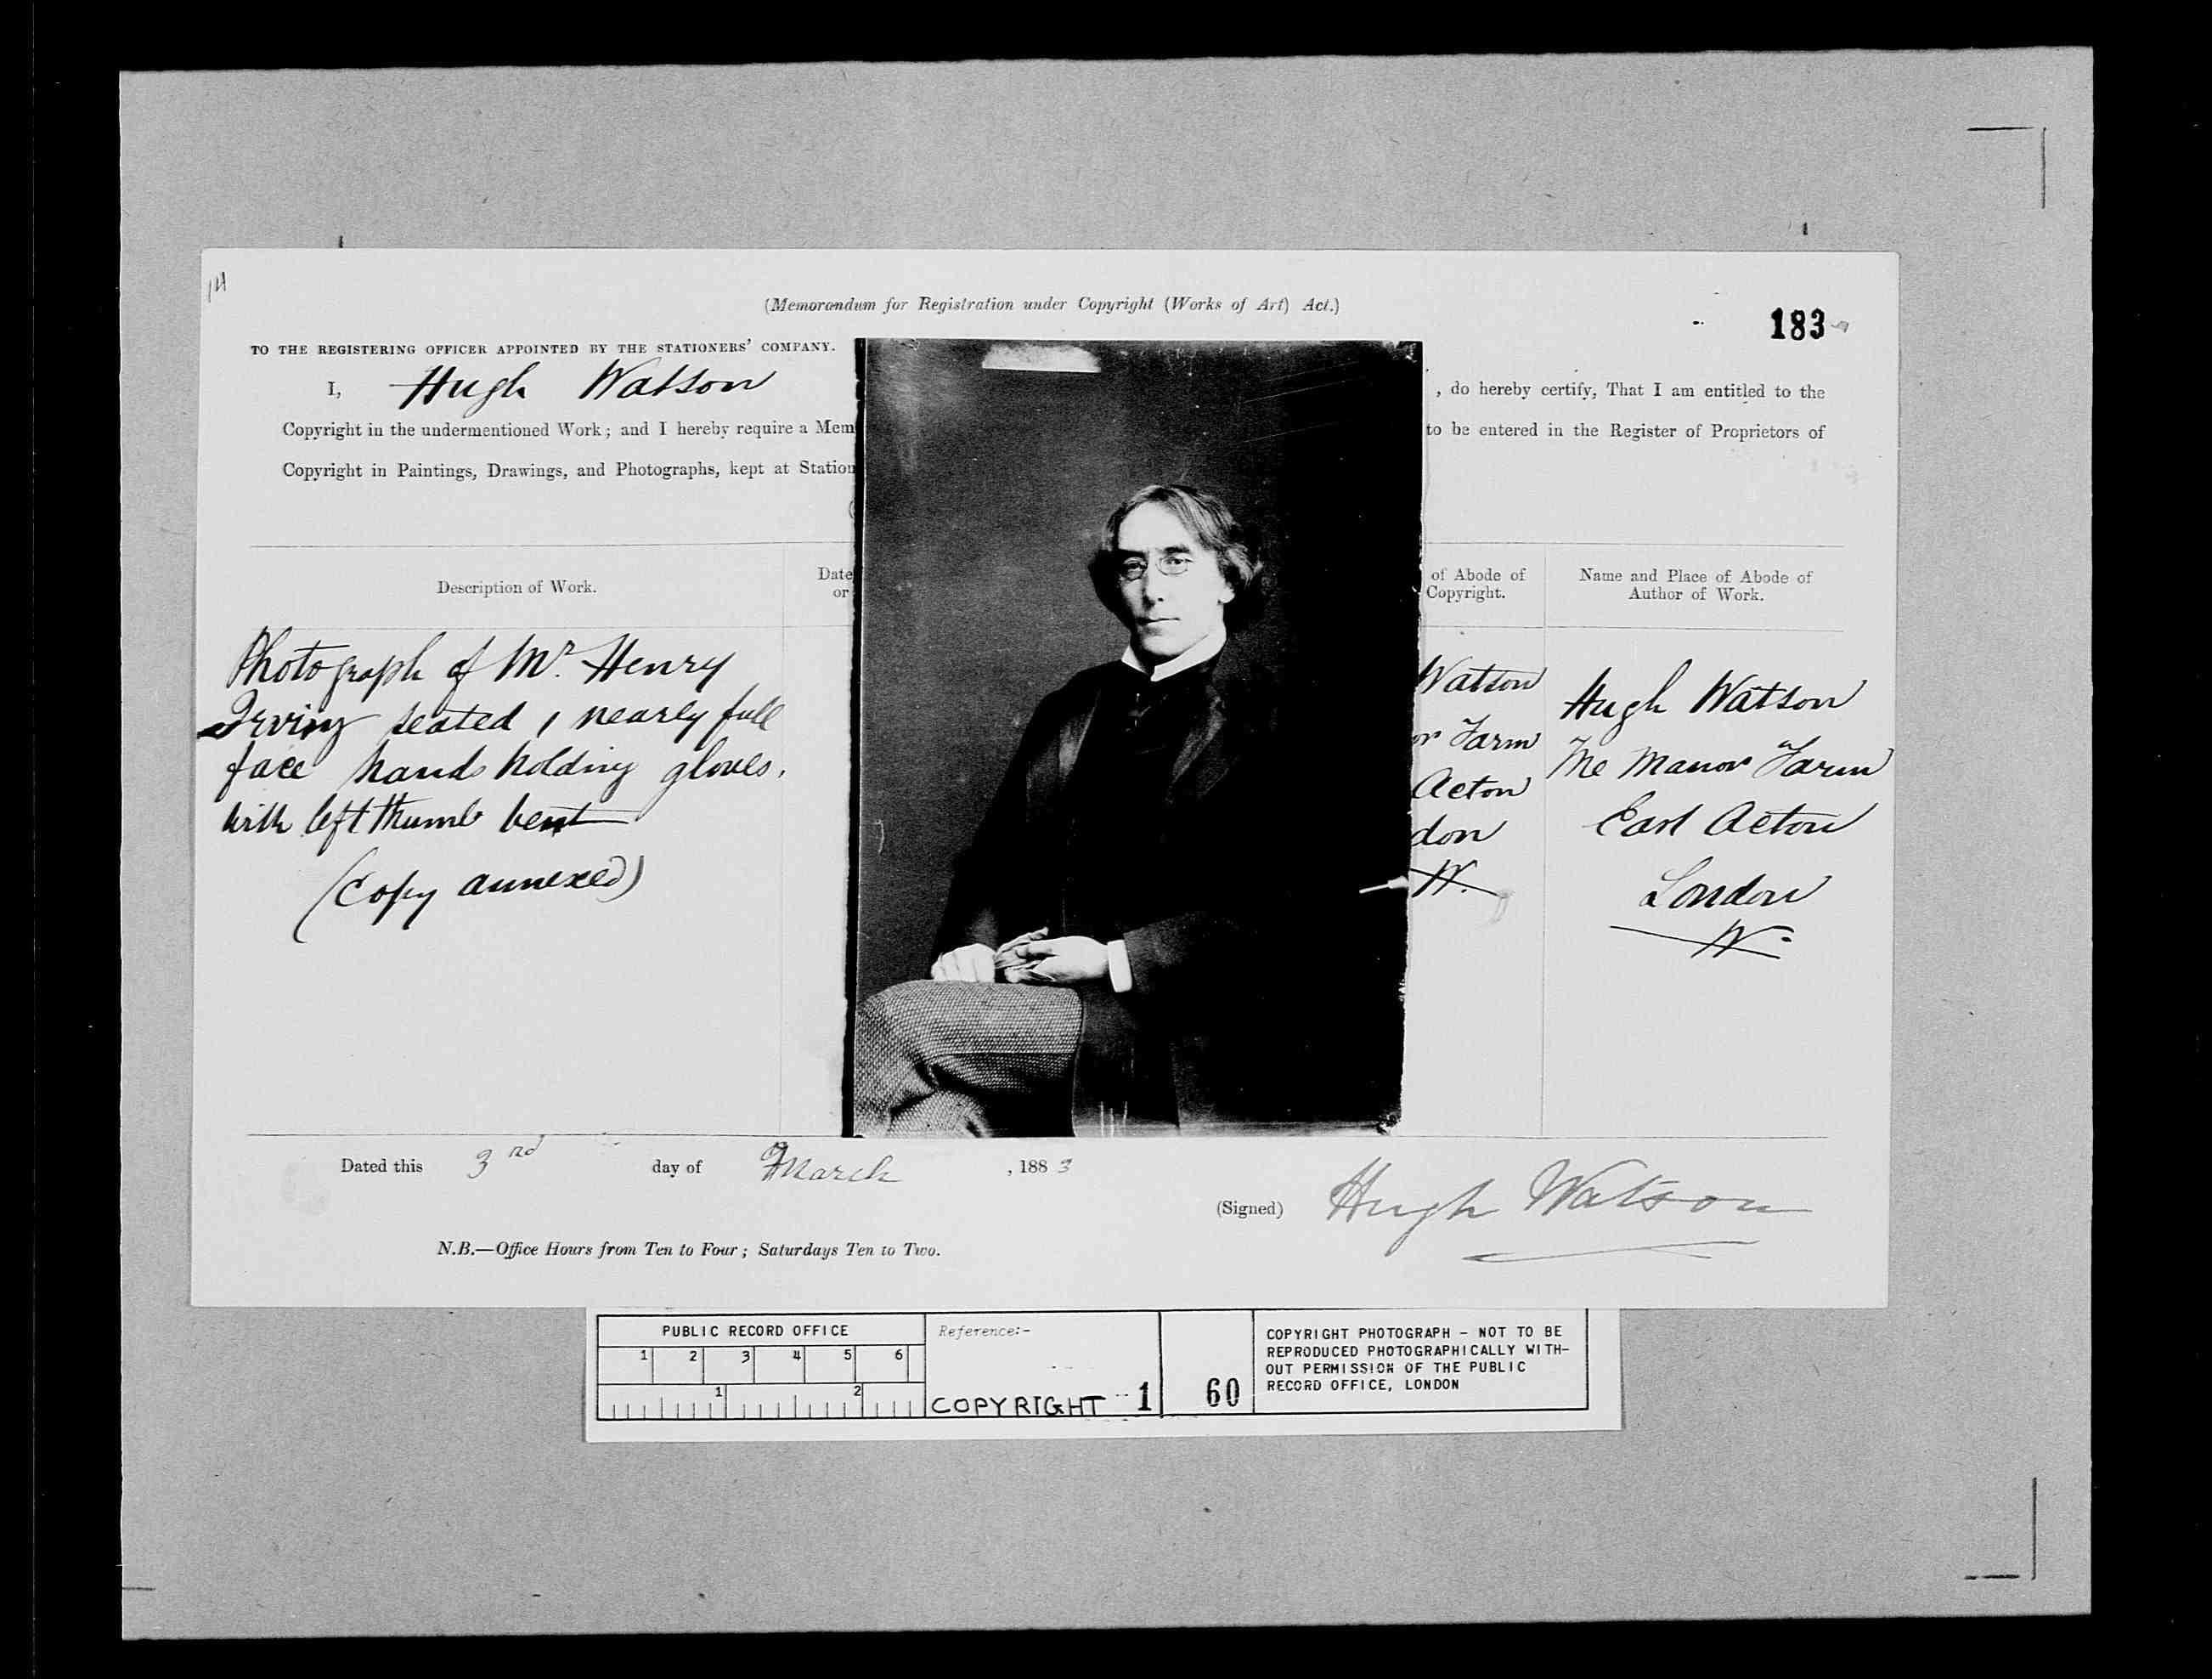 14
(Memorandum for Registration under Copyright (Works of Art) Act.)
183
TO THE REGISTERING OFFICER APPOINTED BY THE STATIONERS' COMPANY.
I, Hugh Watson , do hereby certify, That I am entitled to the
Copyright in the undermentioned Work; and I hereby require a Mem to be entered in the Register of Proprietors of
Copyright in Paintings, Drawings, and Photographs, kept at Station
Description of Work.
Date
or
of Abode of
Copyright.
Name and Place of Abode of
Author of Work.
Photograph of Mr. Henry
Irving seated, nearly full
face hands holding gloves,
with left thumb bent
(Copy annexed)
Watson
or Farm
Acton
don
W.
Hugh Watson
The Manor Farm
East Acton
London
W.
Dated this 3rd day of March , 1883
(Signed) Hugh Watson
N.B.—Office Hours from Ten to Four; Saturdays Ten to Two.
PUBLIC RECORD OFFICE
1 2 3 4 5 6
1 2
Reference:-
COPYRIGHT 1
60
COPYRIGHT PHOTOGRAPH - NOT TO BE
REPRODUCED PHOTOGRAPHICALLY WITH-
OUT PERMISSION OF THE PUBLIC
RECORD OFFICE, LONDON